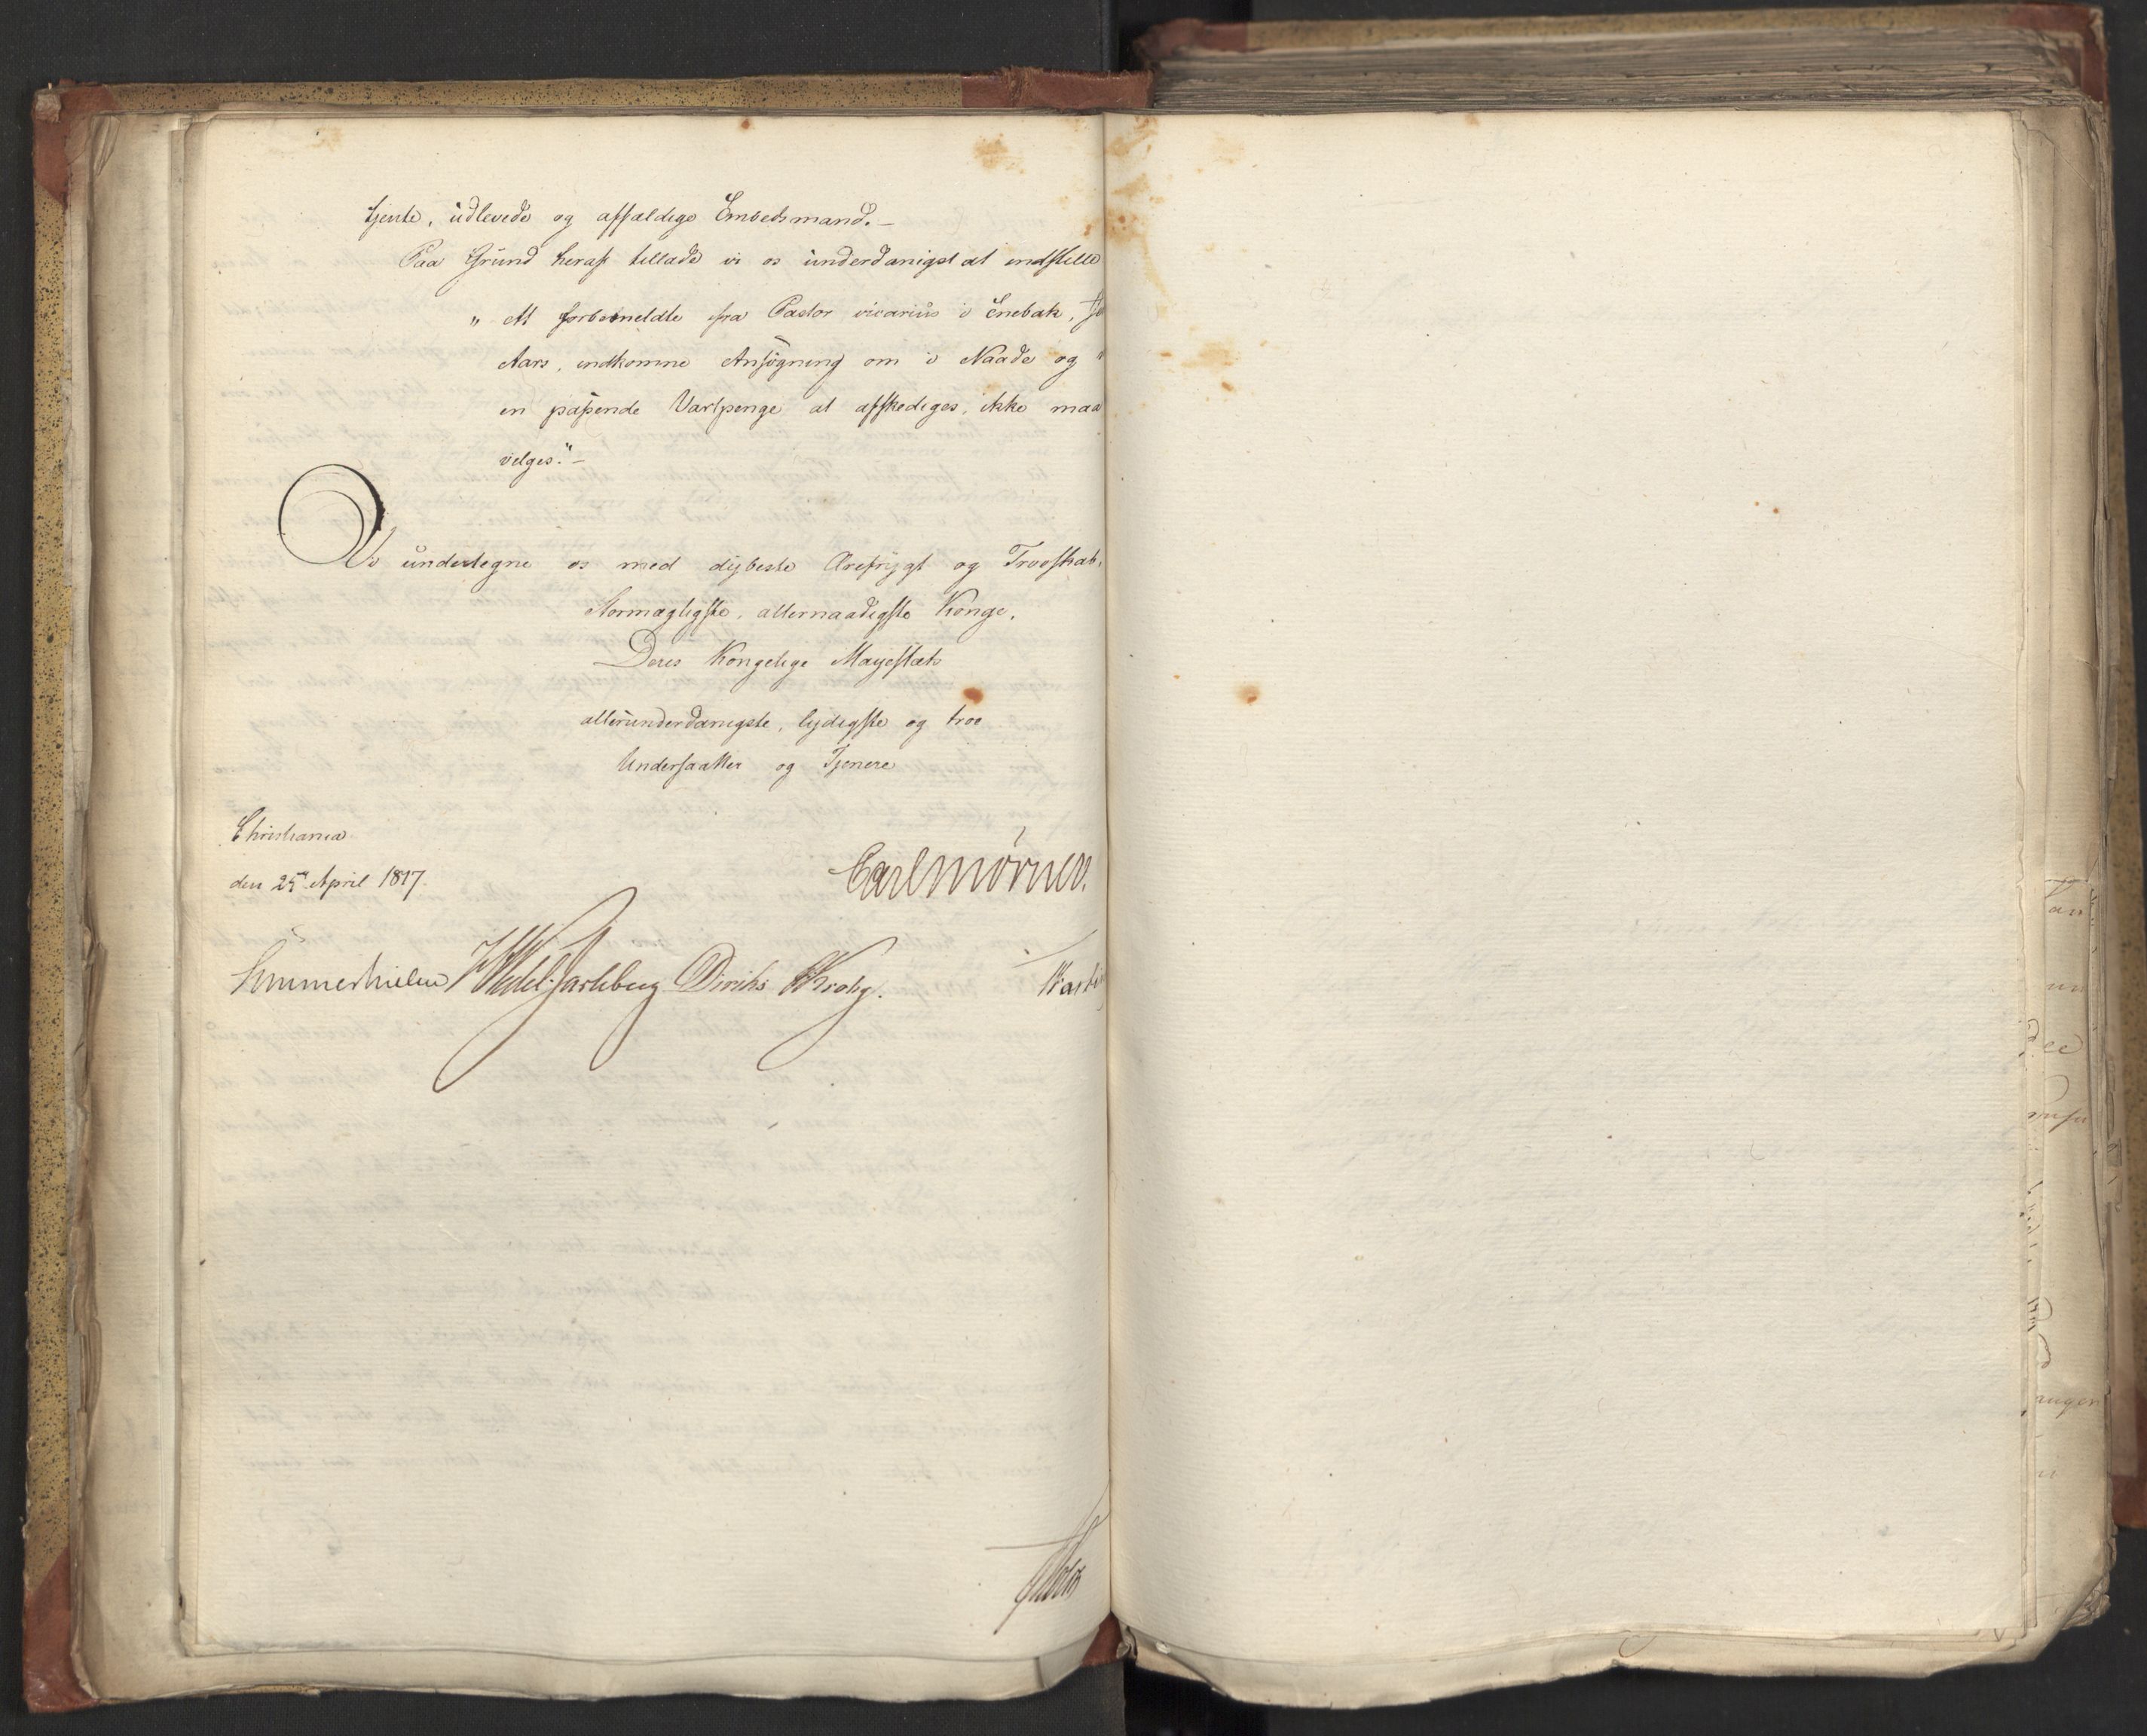 tjente, udlevede og affældige Embedsmænd.—
Paa Grund heraf tillade vi os underdanigst at indstille
" At forbemeldte fra Pastor vicarius i Enebak,
Aars, indkomne Ansögning om i Naade og
en passende Vartpenge at afskediges, ikke maa
vilges."—
Vi undertegne os med dybeste Ærefrygt og Troeskab,
Stormægtigste, allernaadigste Konge,
Deres Kongelige Mayestæts
allerunderdanigste, lydigste og troe
Undersaatter og Tjenere
Christiania
den 25de April 1817.
Carl Mörner.
Sommerhielm Wedel-Jarlsberg Diriks Krohg.